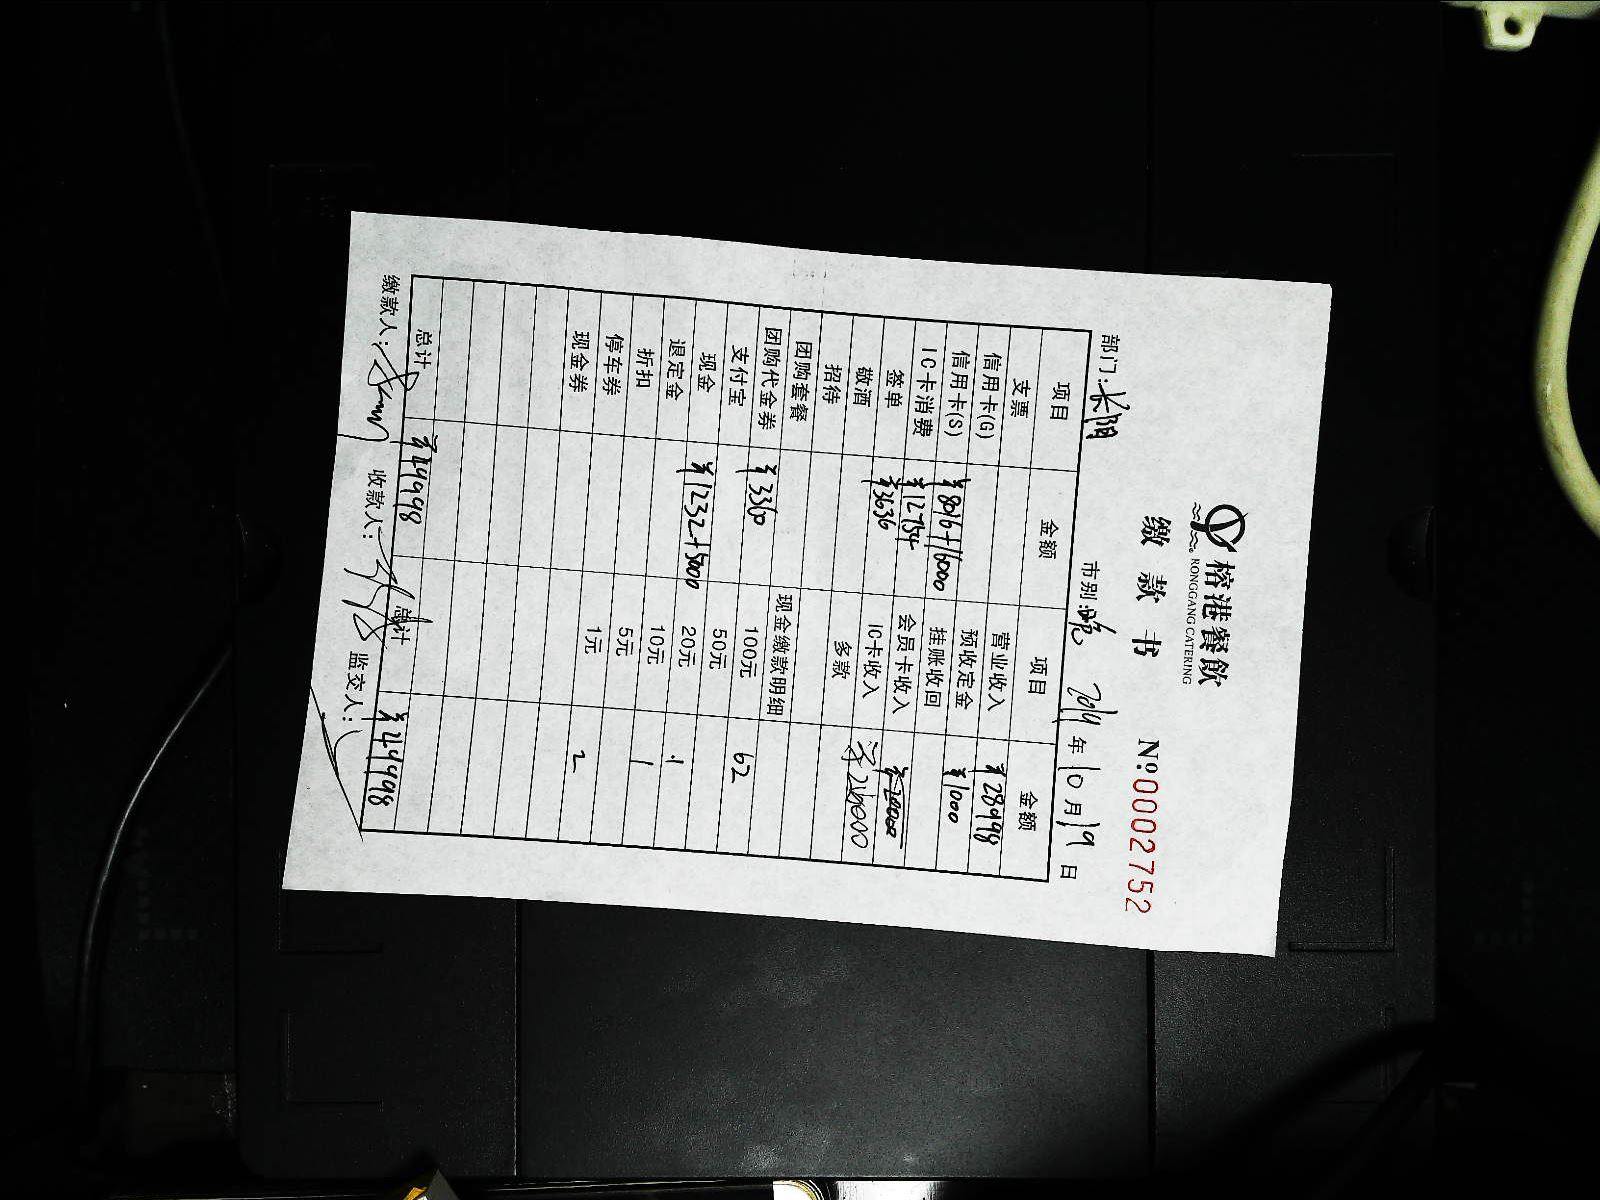 榕港餐飲
RONGGANG CATERING
缴款书 №0002752
部门:长阳 市别:晚 2019年10月19日
项目 金额 项目 金额
支票 营业收入 ¥28998
信用卡(G) 预收定金 ¥1000
信用卡(S) ¥8016+16000 挂账收回
IC卡消费 ¥12754 会员卡收入 ¥20000
签单 ¥3636 IC卡收入 ¥20000
敬酒 多款
招待
团购套餐 现金缴款明细
团购代金券 100元 62
支付宝 ¥3360 50元
现金 ¥1232+5000 20元 1
退定金 10元 1
折扣 5元
停车券 1元 2
现金券
总计 ¥49998 总计 ¥49998
缴款人: 收款人: 监交人: